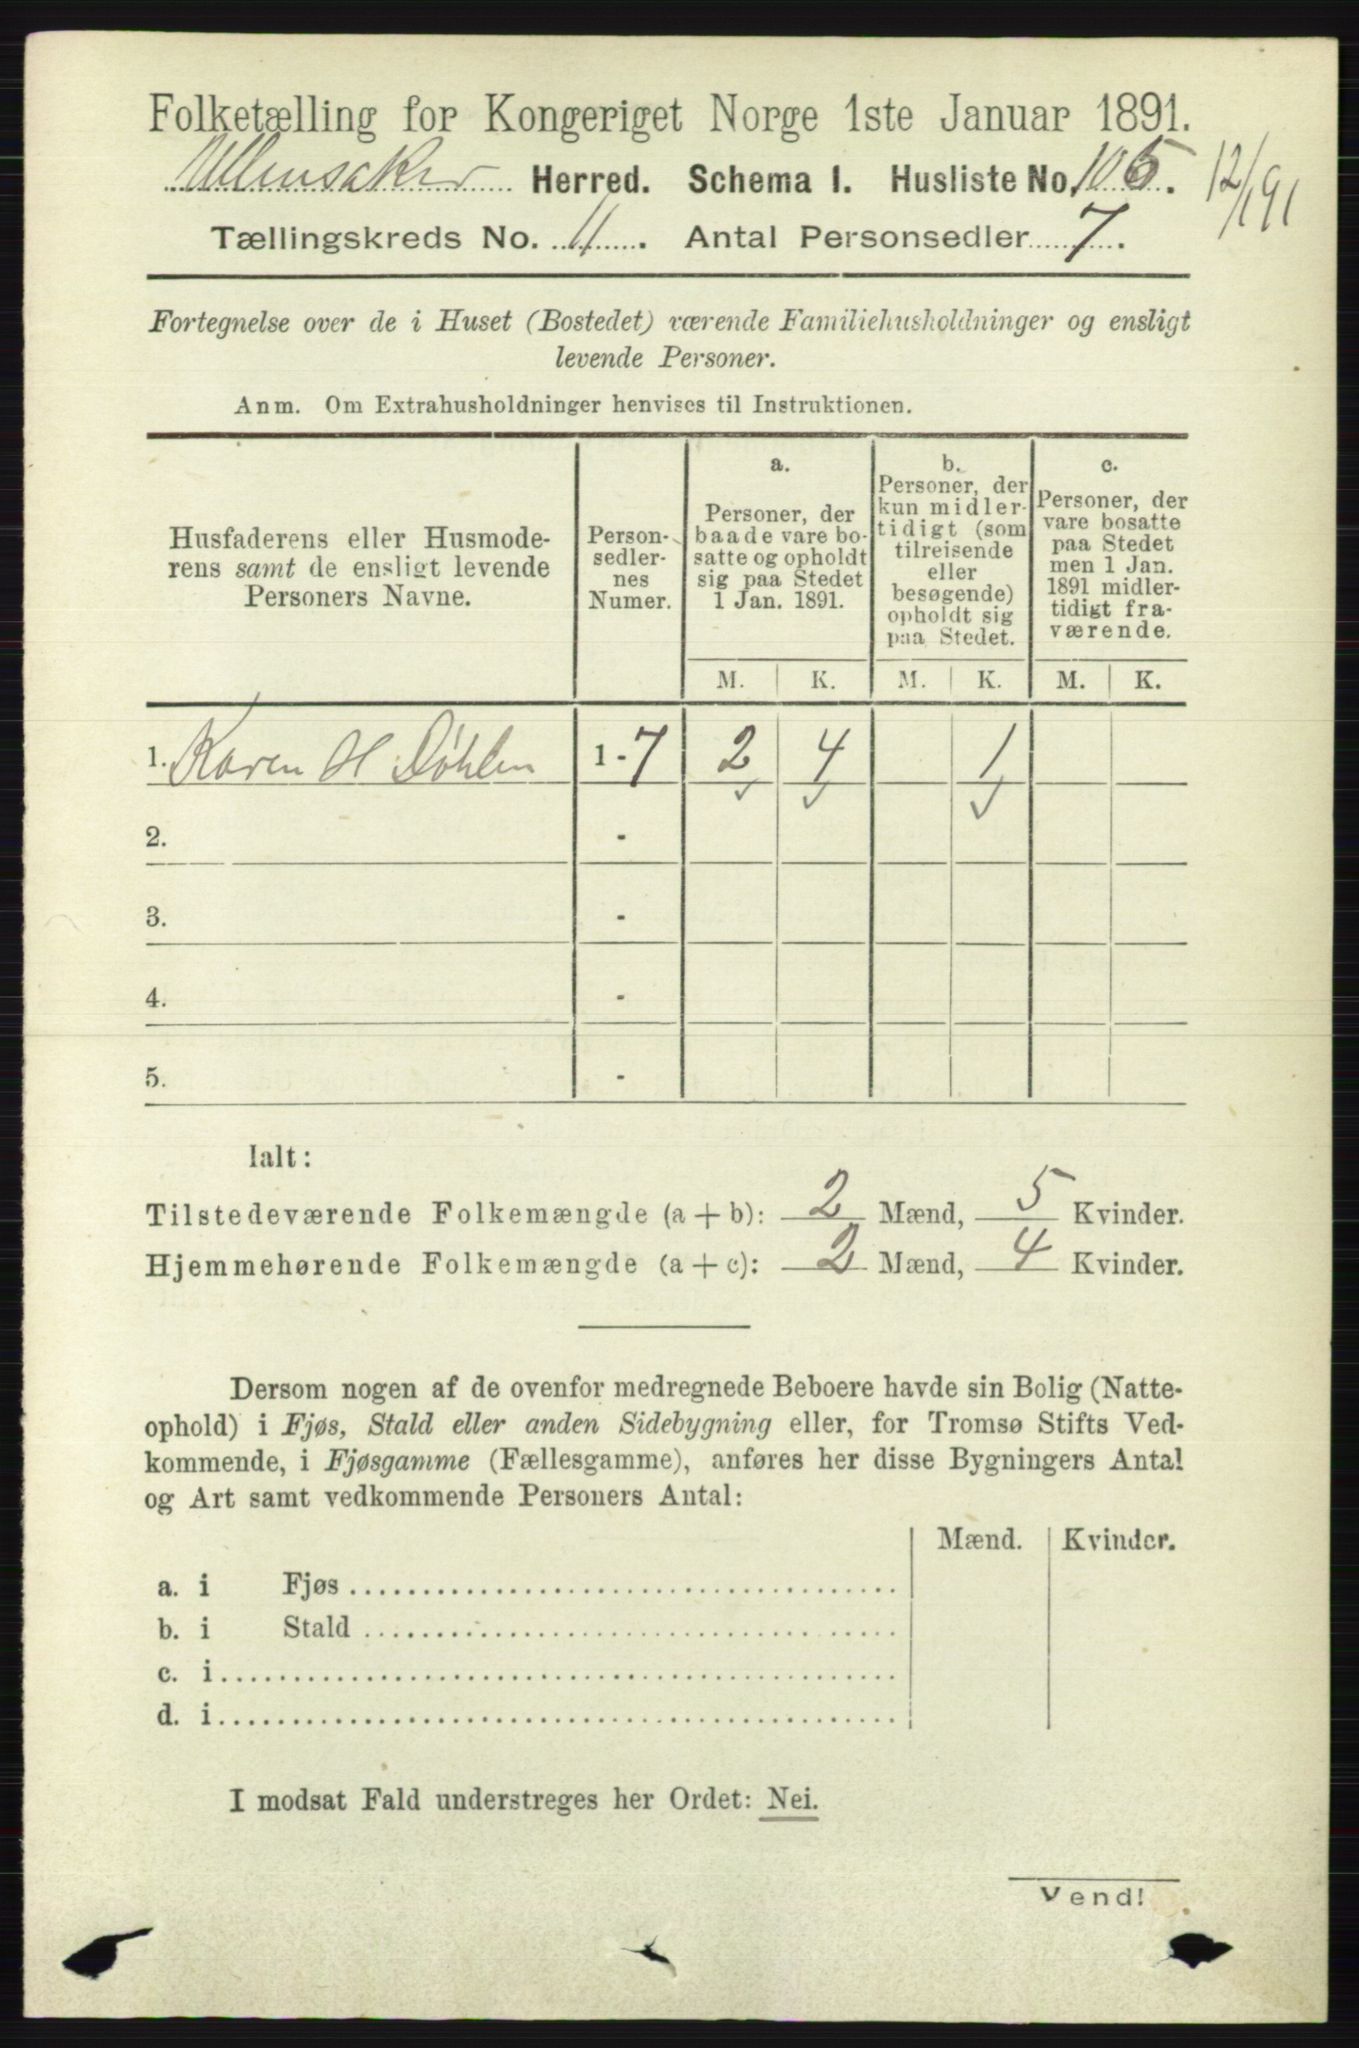 Folketælling for Kongeriget Norge 1ste Januar 1891.
Ullensaker Herred. Schema I. Husliste No. 105. 12/1 91
Tællingskreds No. 11. Antal Personsedler 7.
Fortegnelse over de i Huset (Bostedet) værende Familiehusholdninger og ensligt
levende Personer.
Anm. Om Extrahusholdninger henvises til Instruktionen.
Husfaderens eller Husmode-
rens samt de ensligt levende
Personers Navne.
Person-
sedler-
nes
Numer.
a.
Personer, der
baade vare bo-
satte og opholdt
sig paa Stedet
1 Jan. 1891.
b.
Personer, der
kun midler-
tidigt (som
tilreisende
eller
besøgende)
opholdt sig
paa Stedet.
c.
Personer, der
vare bosatte
paa Stedet
men 1 Jan.
1891 midler-
tidigt fra-
værende.
M. K. M. K. M. K.
1. Karen H Døhlen 1-7 2 4 1
✓ ✓ ✓
2. -
3. -
4. -
5. -
Ialt:
Tilstedeværende Folkemængde (a + b): 2 Mænd, 5 Kvinder.
Hjemmehørende Folkemængde (a + c): 2 Mænd, 4 Kvinder.
Dersom nogen af de ovenfor medregnede Beboere havde sin Bolig (Natte-
ophold) i Fjøs, Stald eller anden Sidebygning eller, for Tromsø Stifts Ved-
kommende, i Fjøsgamme (Fællesgamme), anføres her disse Bygningers Antal
og Art samt vedkommende Personers Antal:
Mænd. Kvinder.
a. i Fjøs
b. i Stald
c. i
d. i
I modsat Fald understreges her Ordet: Nei.
Vend!